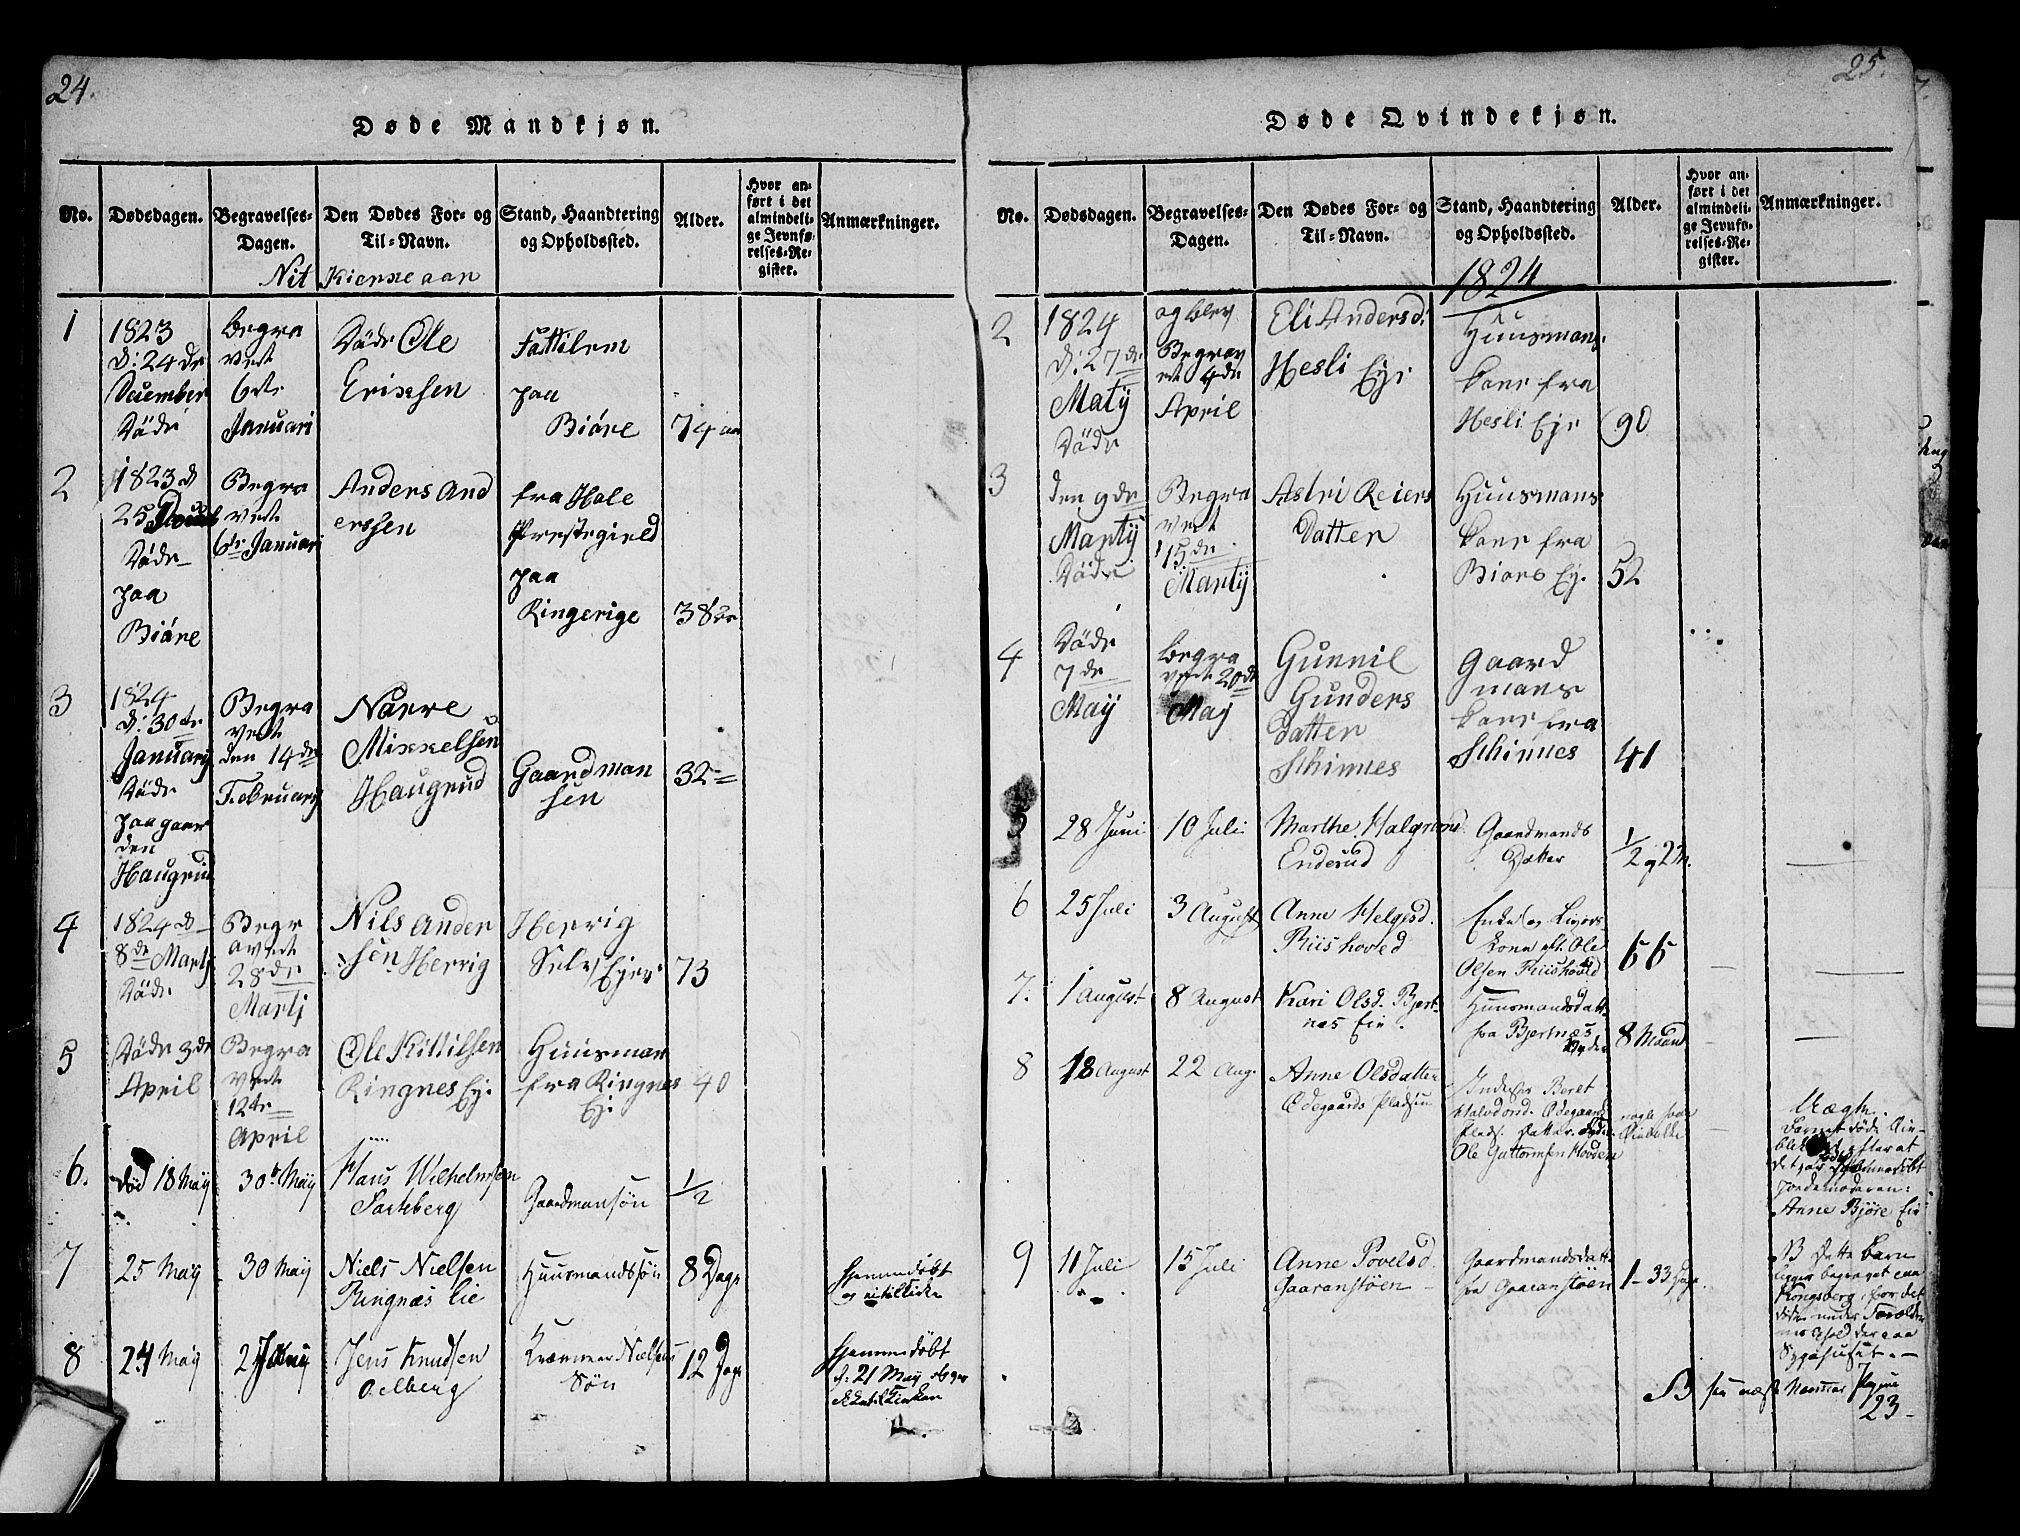 24.
Døde Mandkjøn.
No.
Dødsdagen.
Begravelses-
Dagen.
Den Dødes For- og
Til-Navn.
Stand, Haandtering
og Opholdssted.
Alder.
Hvor an-
ført i det
almindeli-
ge Jevnfø-
relses-Re-
gister.
Anmærkninger.
Nit Kierke aar
1
1823
d: 24 de
December
Døde
Begra
vet
6te
Januari
Døde Ole
Erixsen
Fattilem
paa
Biöre
74 aar
2
1823 d
25
Døde
paa
Biöre
Begra
vet
6te Januari
Anders And
erssen
fra Hole
Prestegield
paa
Ringerige
38
3
1824
d: 30te
Januarj
Døde
paa gaar
den
Haugrud
Begra
vet
den 14de
Februarj
Narve
Mixxelsen
Haugrud
Gaardman
sen
32
4
1824 d
8de Martj
Døde
Begr
avet
28de
Martj
Nils Ander
sen Hervig
Hervig
Selv Ejer
73
5
Døde 3de
April
Begra
vet
12te
April
Ole Kittilsen
Ringnes Ej.
Huusman
fra Ringnes
Ej.
40
6.
død 18 May
30te May
Hans Wilhelmsen
Sarteberg
Gaardmansøn
1/2
7
25 May
30 May
Niels Nielsen
Ringnæs Eie
Huusmandssøn
8 Dage
hjemmedøbt
8
24 May
Jens Knudsen
Oelberg
Søn
12 Dage
hjemmedøbt
d. 21 May
25.
Døde Qvindekjøn.
No.
Dødsdagen.
Begravelses-
Dagen.
Den Dødes For- og
Til-Navn.
Stand, Haandtering
og Opholdssted.
Alder.
Hvor an-
ført i det
almindeli-
ge Jevnfø-
relses-Re-
gister.
Anmærkninger.
1824
2
1824
d. 27de
Matij
Døde
og blev
Begrav
et 4de
April
Eli Andersd.
Hesli Eje
Huusmans
kone fra
Hesli Eje
90
3
den 9de
Martij
Døde
Begra
vet
15de
Martij
Astri Reiers
Datter
Huusmans
kone fra
Biøre Ej.
52
4
Døde
7de
Maij
Begra
vet 20de
Maj
Gunnil
Gunders
datter
Schinnes
Gaard
mans
kone fra
Schinnes
41
5
28 Juni
10 Juli
Marthe Halgrimsd.
Enderud
Gaardmands
Datter
1/2 og 2 M.
6
25 Juli
3 August
Anne Helgesd.
Riishoved
Enke og
kone eft. Ole
Olsen Riishoved
66
7.
1 August
8 August
Kari Olsd. Bjert-
næs Eie.
Huusmandsdatt.
fra Bjertnæs
8 Maaned
8
18 August
22 Aug.
Anne Olsdatter
Ødegaards Pladsen
Beret
Halvdorsd. Ødegaards
Plads. Datter.
Ole Guttormsen Hovden
nogle faae
Øieblikke
Uægte.
Barnet døde Øie-
blik efter at
det var hjemmedøbt
Jordemoderen:
Anne Bjøre Eie
9
11 Juli
15 Juli
Anne Povelsd.
Gaaranstøen
Gaardmandsdatt.
fra Gaaranstøen
1 - 33 Dage
NB Dette barn
ligger begravet paa
Kongsberg, for det
døde under Foræld-
res Ophold der paa
Sygehuset.
NB see næst
Pagina
23